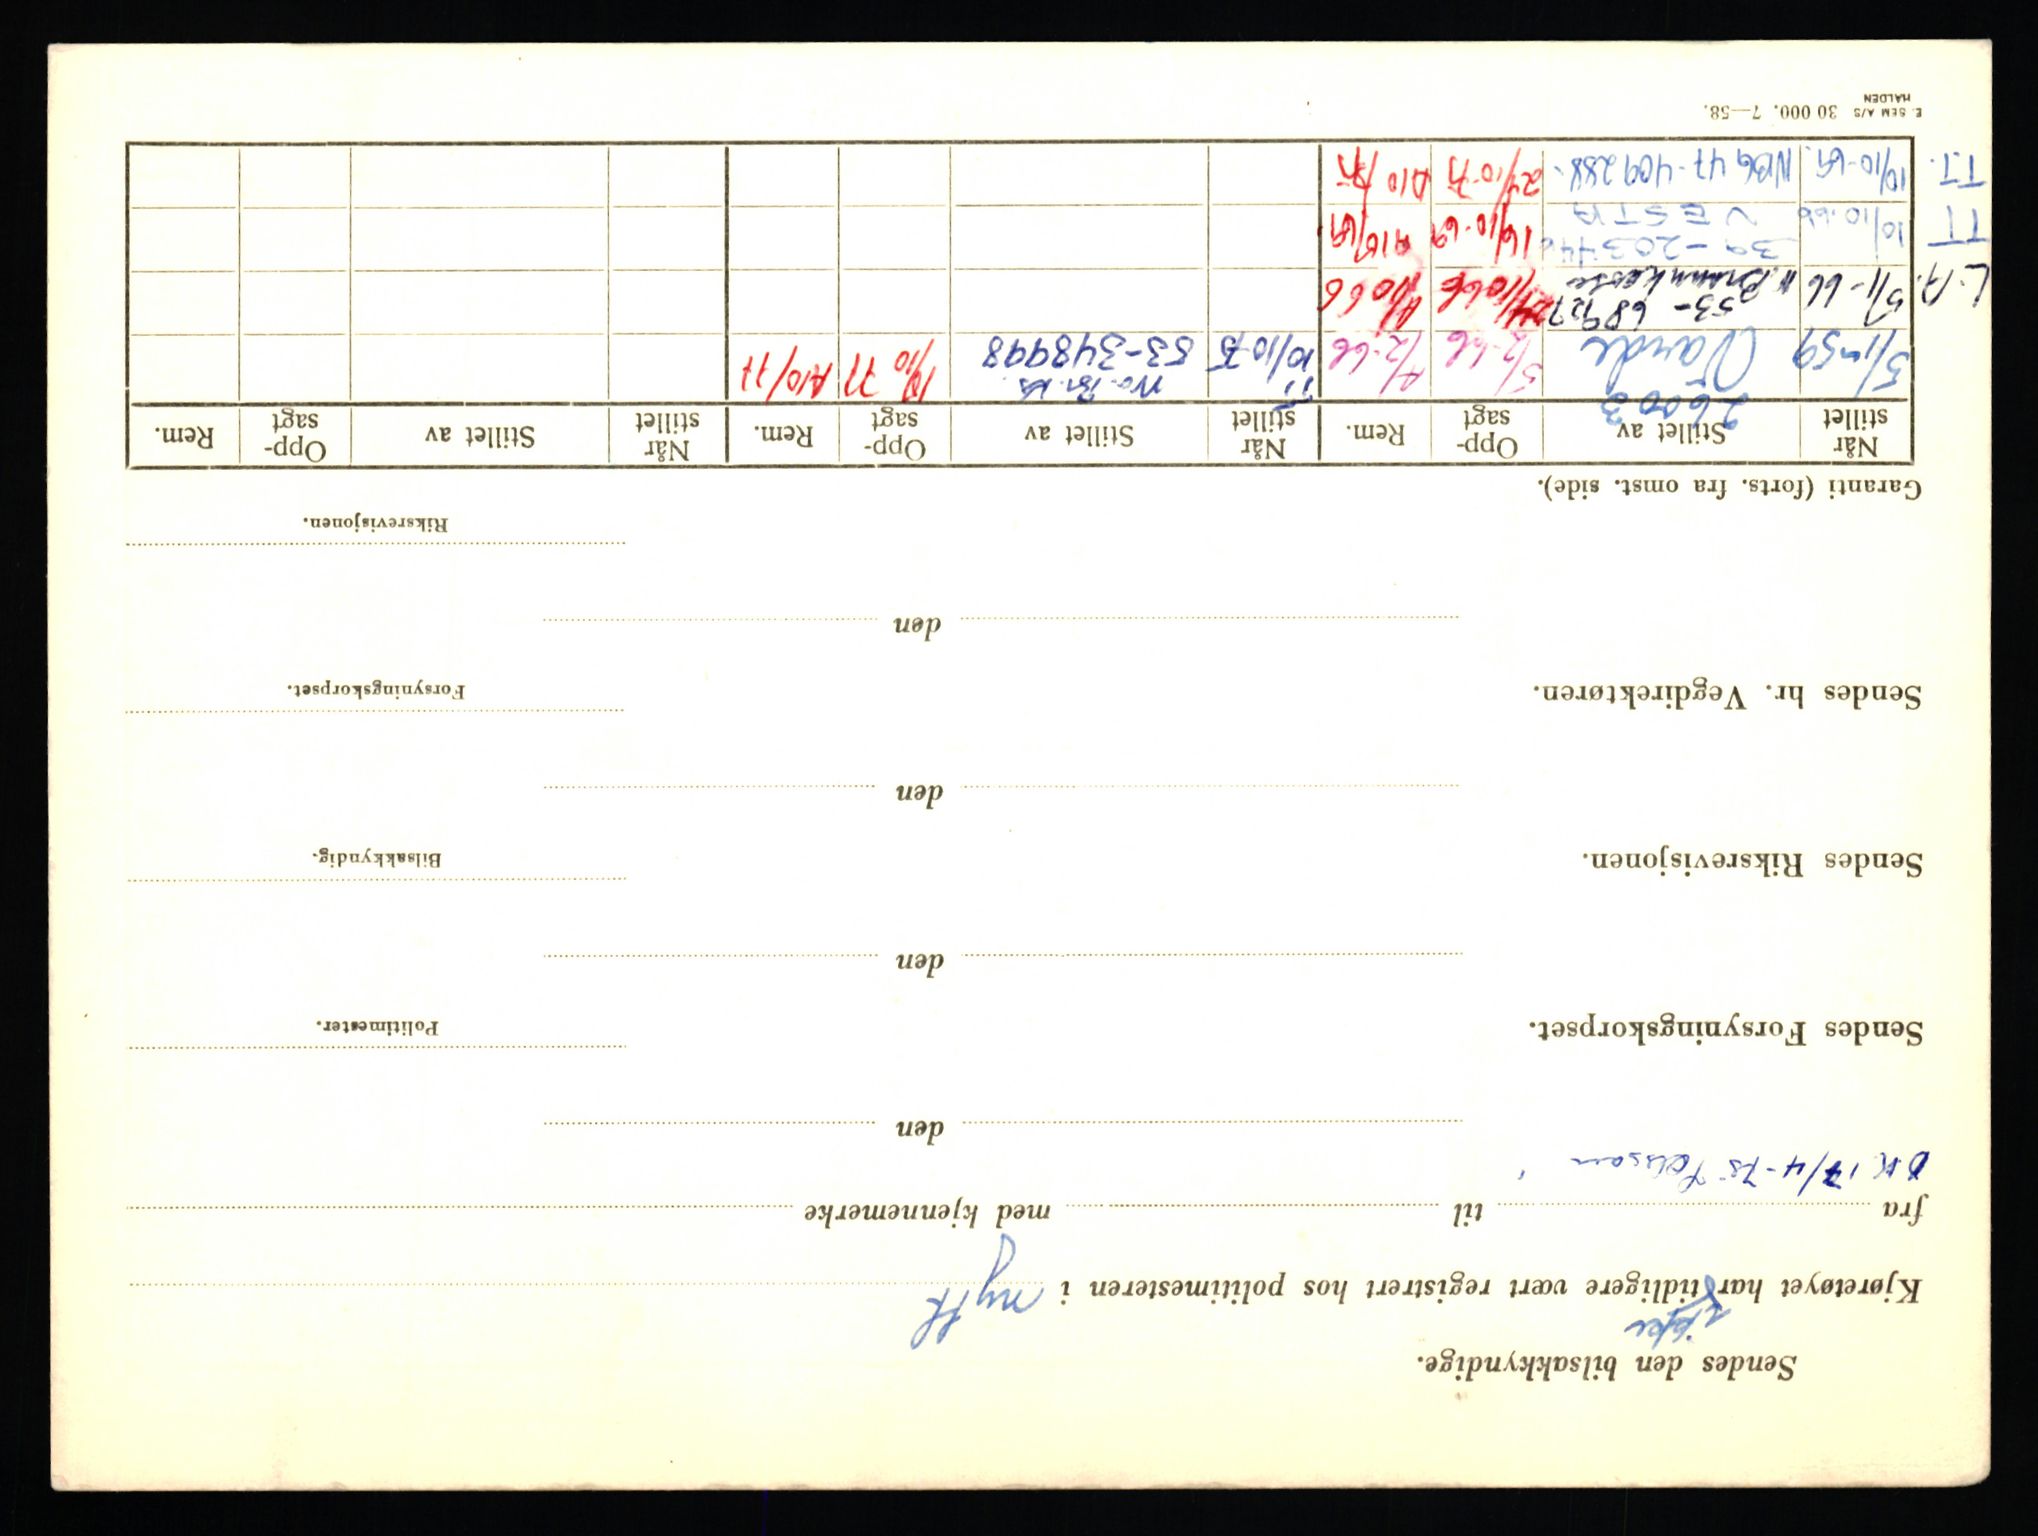 Sendes den bilsakkyndige.
ikke
Kjøretøyet har tidligere vært registrert hos politimesteren i nytt
fra til med kjennemerke
O.K. 17/4-75
den
Sendes Forsyningskorpset.
Politimester.
den
Sendes Riksrevisjonen.
Bilsakkyndig.
den
Sendes hr. Vegdirektøren.
Forsyningskorpset.
den
Riksrevisjonen.
Garanti (forts. fra omst. side).
Når stillet Stillet av Opp-sagt Rem. Når stillet Stillet av Opp-sagt Rem. Når stillet Stillet av Opp-sagt Rem.
26003
5/1-59 5/2-66 4/2-66 10/10-75 53-348998 10/10 77 A10/77
L.A. 5/1-66 53-68927 10 66
TT 10/10.66 39-20344 VESTA 16/10-69 A10/69.
T.T. 10/10-69. NBG 47-409288. 24/10-75 A10/75
E. SEM A/S HALDEN 30 000. 7—58.